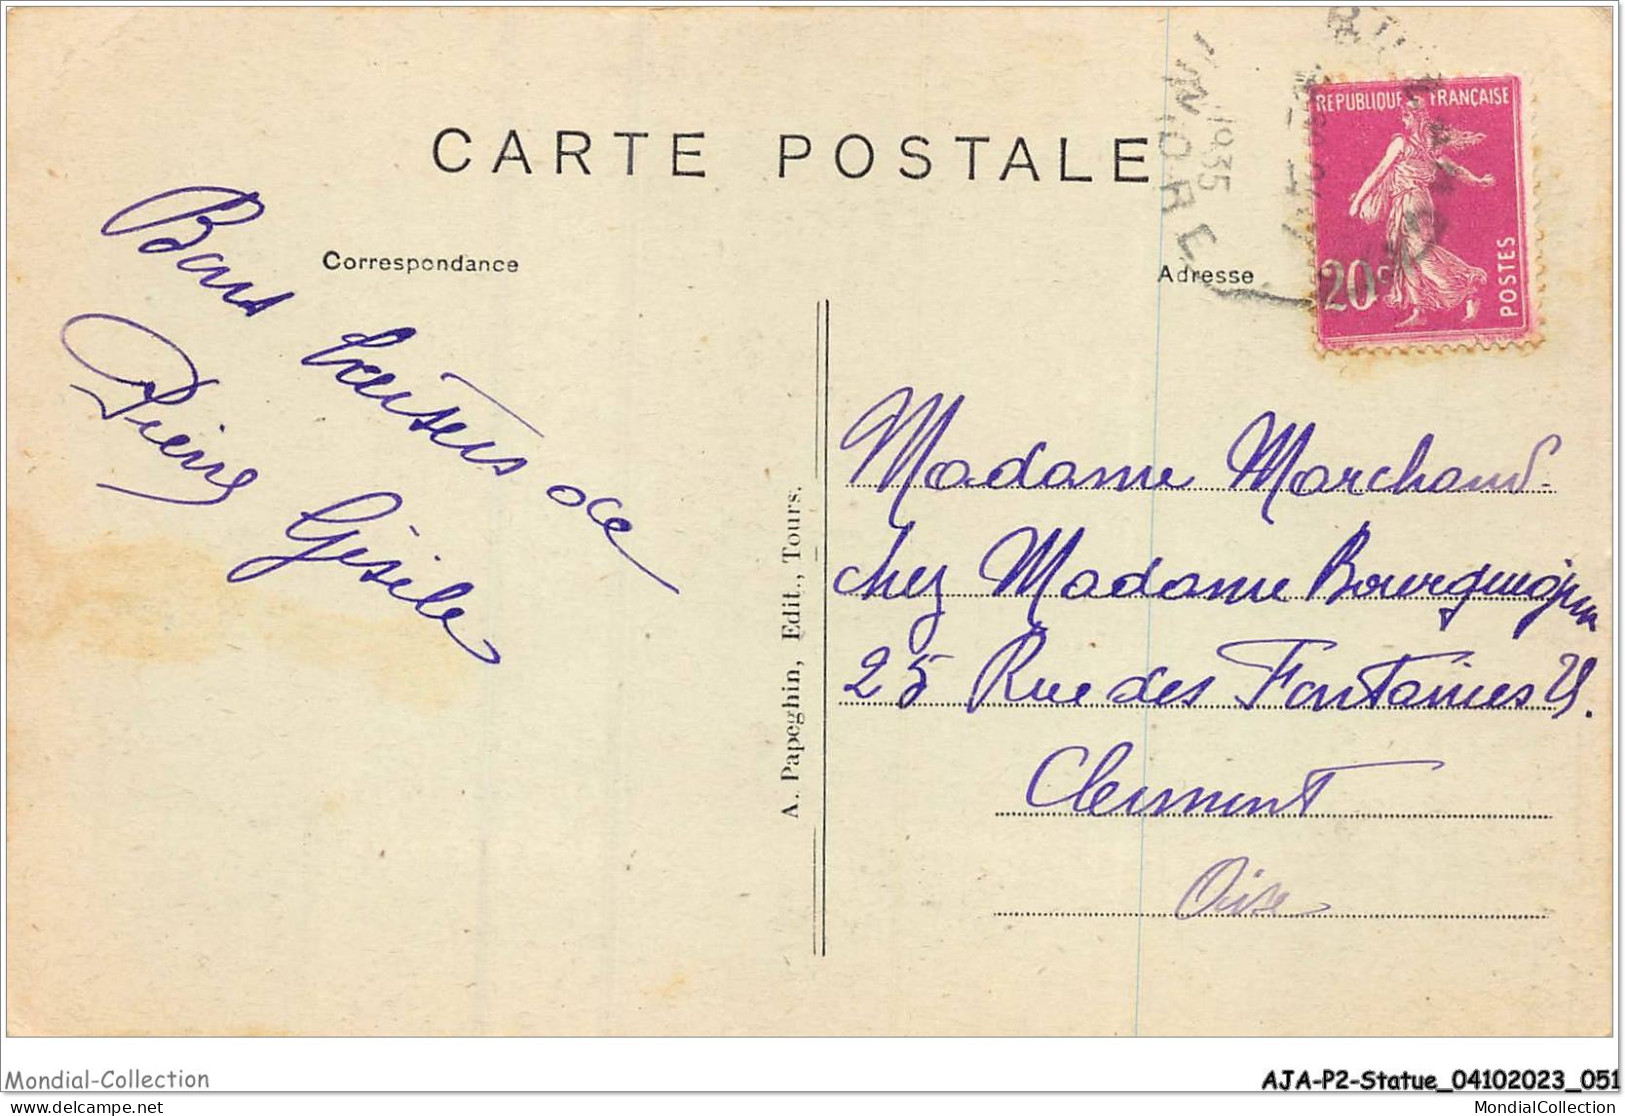 CARTE POSTALE
Correspondance
Adresse
REPUBLIQUE FRANÇAISE
20c
POSTES
INDRE
1935
Bons baisers de
Pierre Gisèle
A. Papeghin, Edit., Tours.
Madame Marchand
chez Madame Bourguignon
25 Rue des Fontaines 25.
Clermont
Oise
Mondial-Collection
AJA-P2-Statue_04102023_051
delcampe.net
MondialCollection